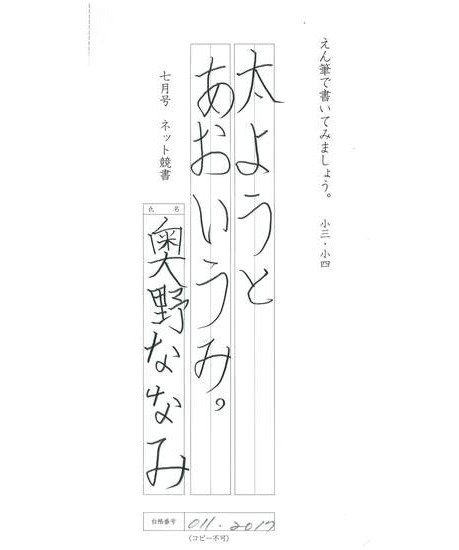 えん筆で書いてみましょう。 小三・小四
太ようと
あおいうみ。
七月号 ネット競書
氏名
奥野ななみ
台帳番号 011-2017
(コピー不可)